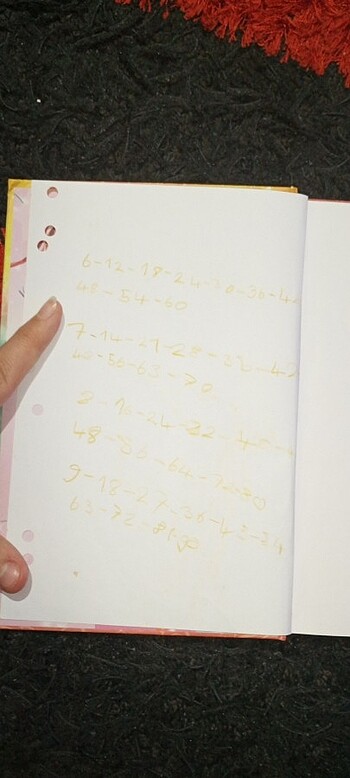 6-12-18-24-30-36-42
48-54-60
7-14-21-28-35-42
49-56-63-70
8-16-24-32-40-
48-56-64-72-80
9-18-27-36-45-54
63-72-81-90